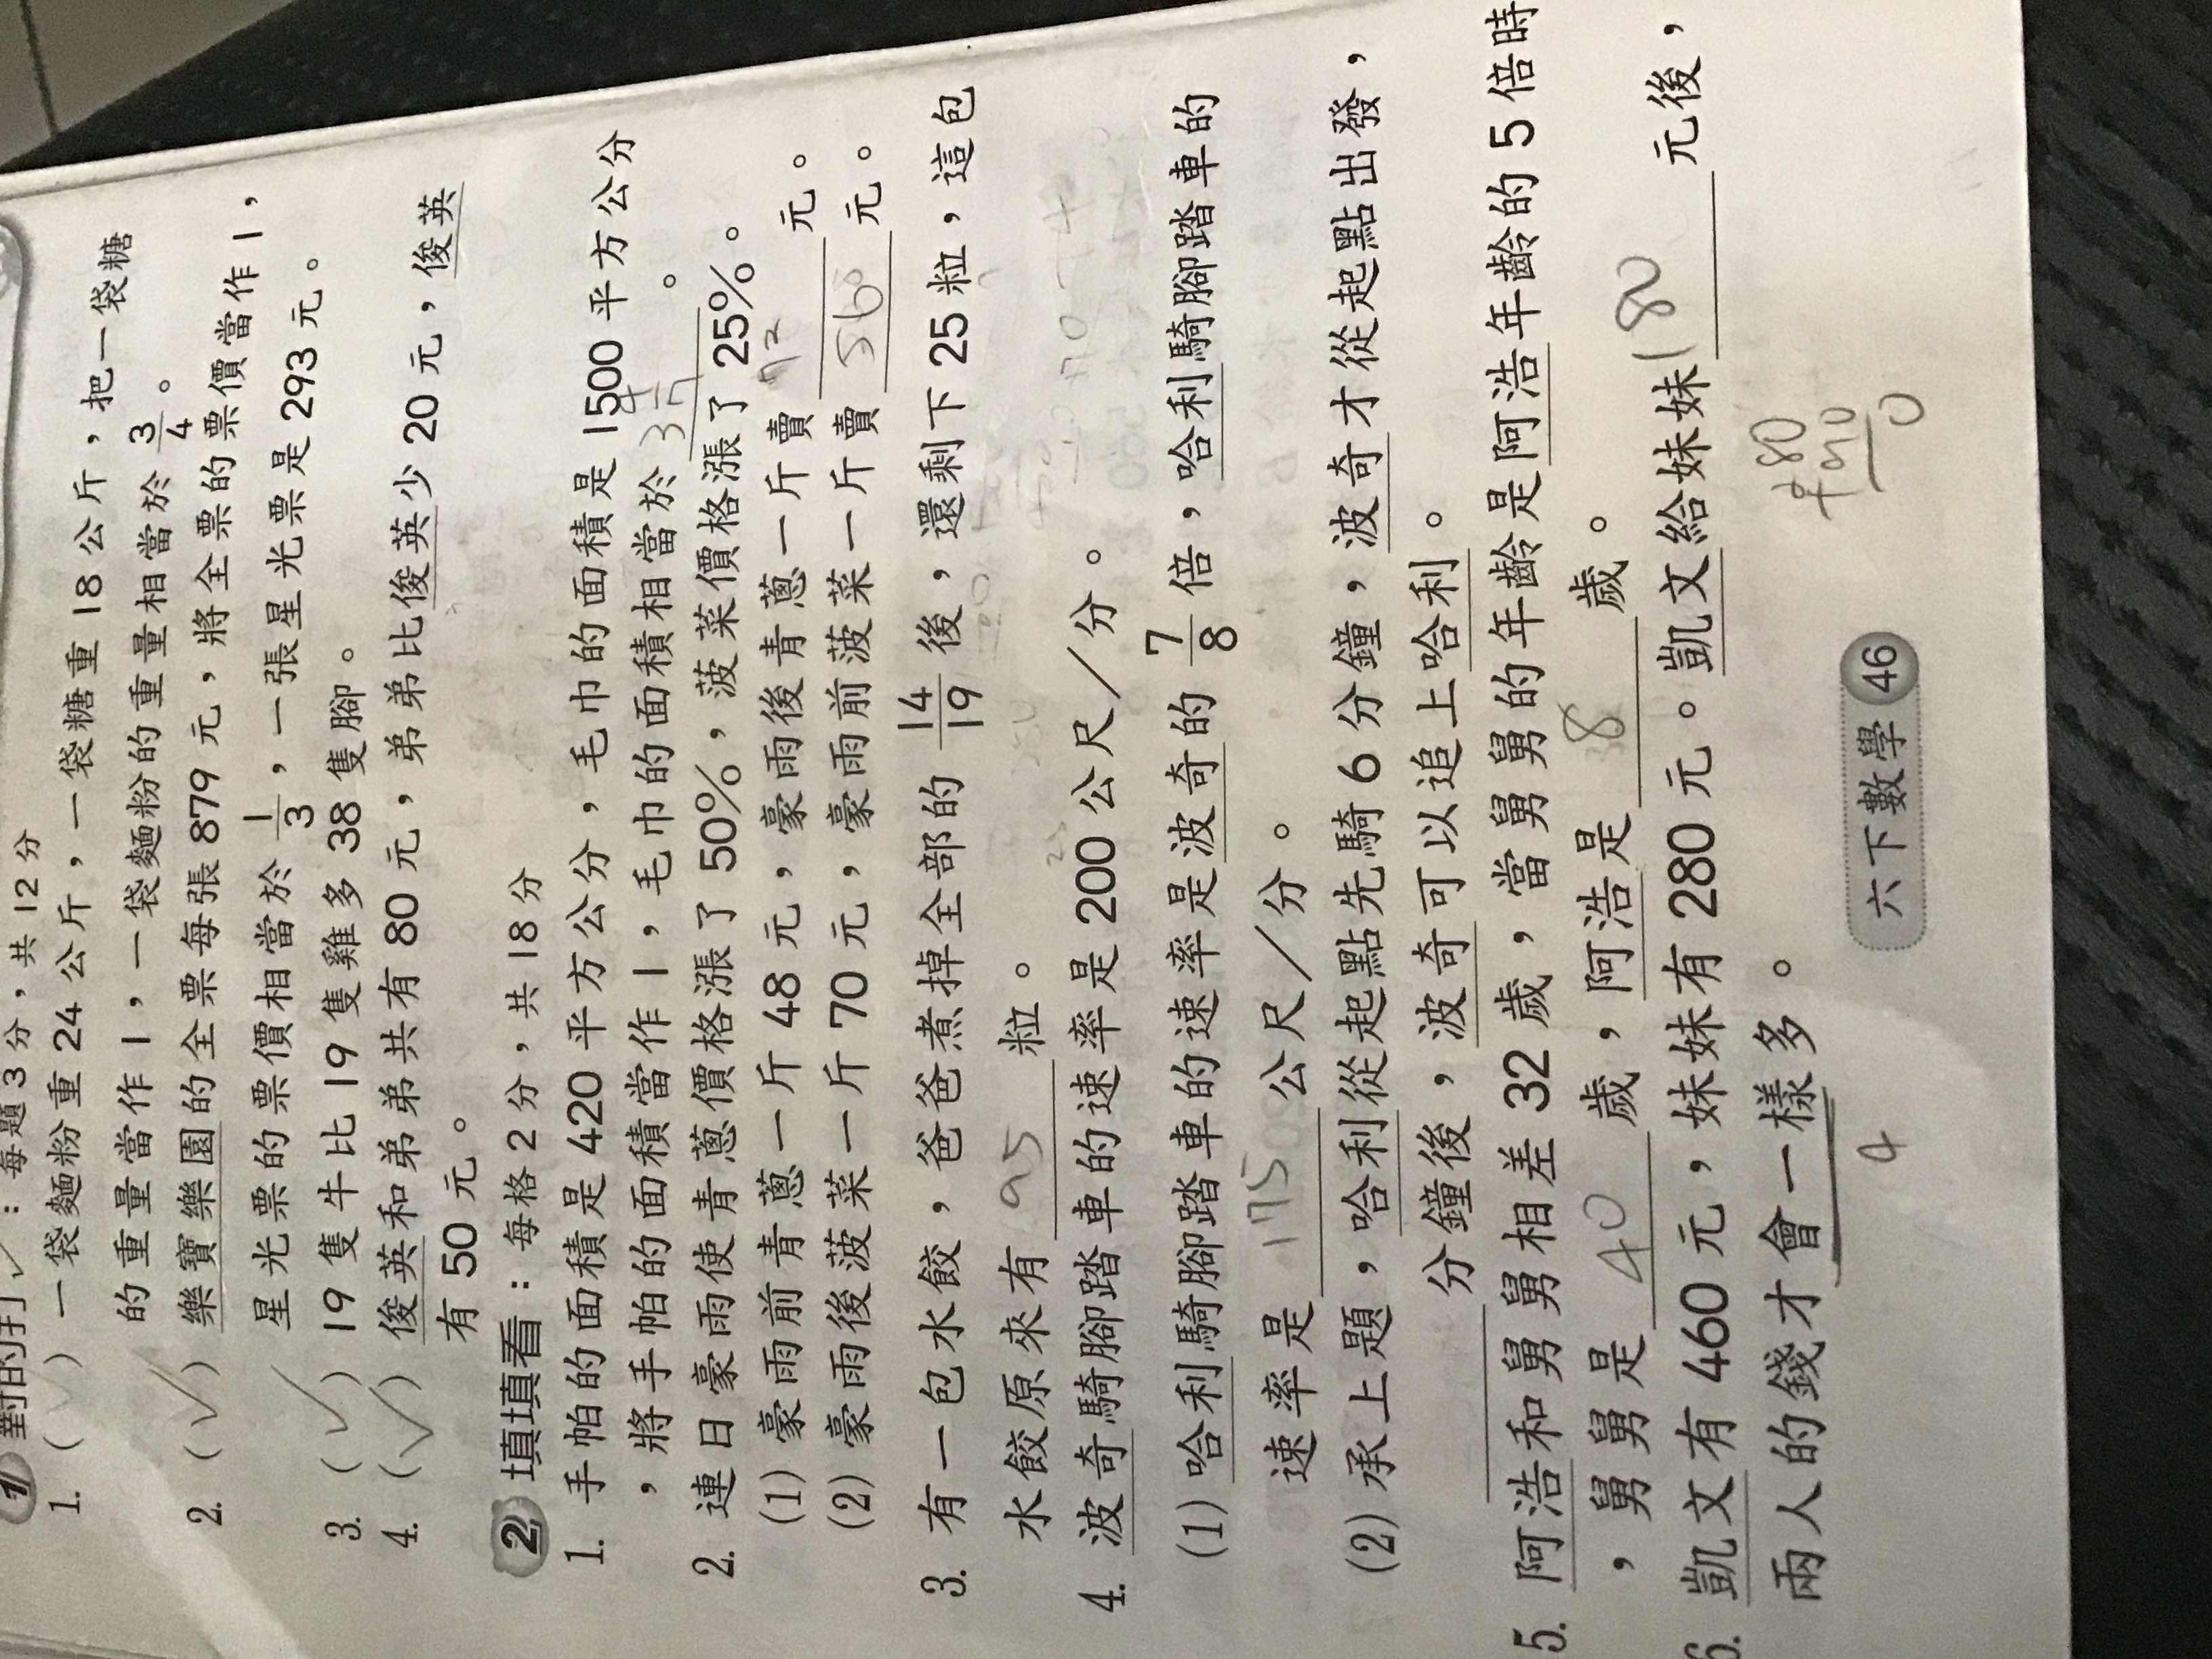 1 對的打✓：每題3分，共12分
1. (✓) 一袋麵粉重24公斤，一袋糖重18公斤，把一袋糖
的重量當作1，一袋麵粉的重量相當於3/4。
2. (✓) 樂寶樂園的全票每張879元，將全票的票價當作1，
星光票的票價相當於1/3，一張星光票是293元。
3. (✓) 19隻牛比19隻雞多38隻腳。
4. (✓) 俊英和弟弟共有80元，弟弟比俊英少20元，俊英
有50元。
2 填填看：每格2分，共18分
1. 手帕的面積是420平方公分，毛巾的面積是1500平方公分
，將手帕的面積當作1，毛巾的面積相當於3 4/7。
2. 連日豪雨使青蔥價格漲了50%，菠菜價格漲了25%。
(1) 豪雨前青蔥一斤48元，豪雨後青蔥一斤賣72元。
(2) 豪雨後菠菜一斤70元，豪雨前菠菜一斤賣560元。
3. 有一包水餃，爸爸煮掉全部的14/19後，還剩下25粒，這包
水餃原來有95粒。
4. 波奇騎腳踏車的速率是200公尺／分。
(1) 哈利騎腳踏車的速率是波奇的7/8倍，哈利騎腳踏車的
速率是175公尺／分。
(2) 承上題，哈利從起點先騎6分鐘，波奇才從起點出發，
分鐘後，波奇可以追上哈利。
5. 阿浩和舅舅相差32歲，當舅舅的年齡是阿浩年齡的5倍時
，舅舅是40歲，阿浩是8歲。
6. 凱文有460元，妹妹有280元。凱文給妹妹180元後，
兩人的錢才會一樣多。
六下數學 46